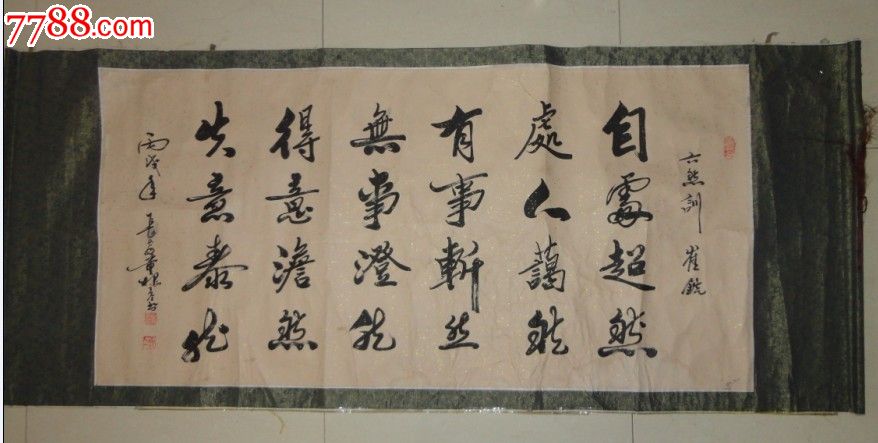 7788.com
六然訓 崔銑
自處超然
處人藹然
有事斬然
無事澄然
得意澹然
失意泰然
丙戌年